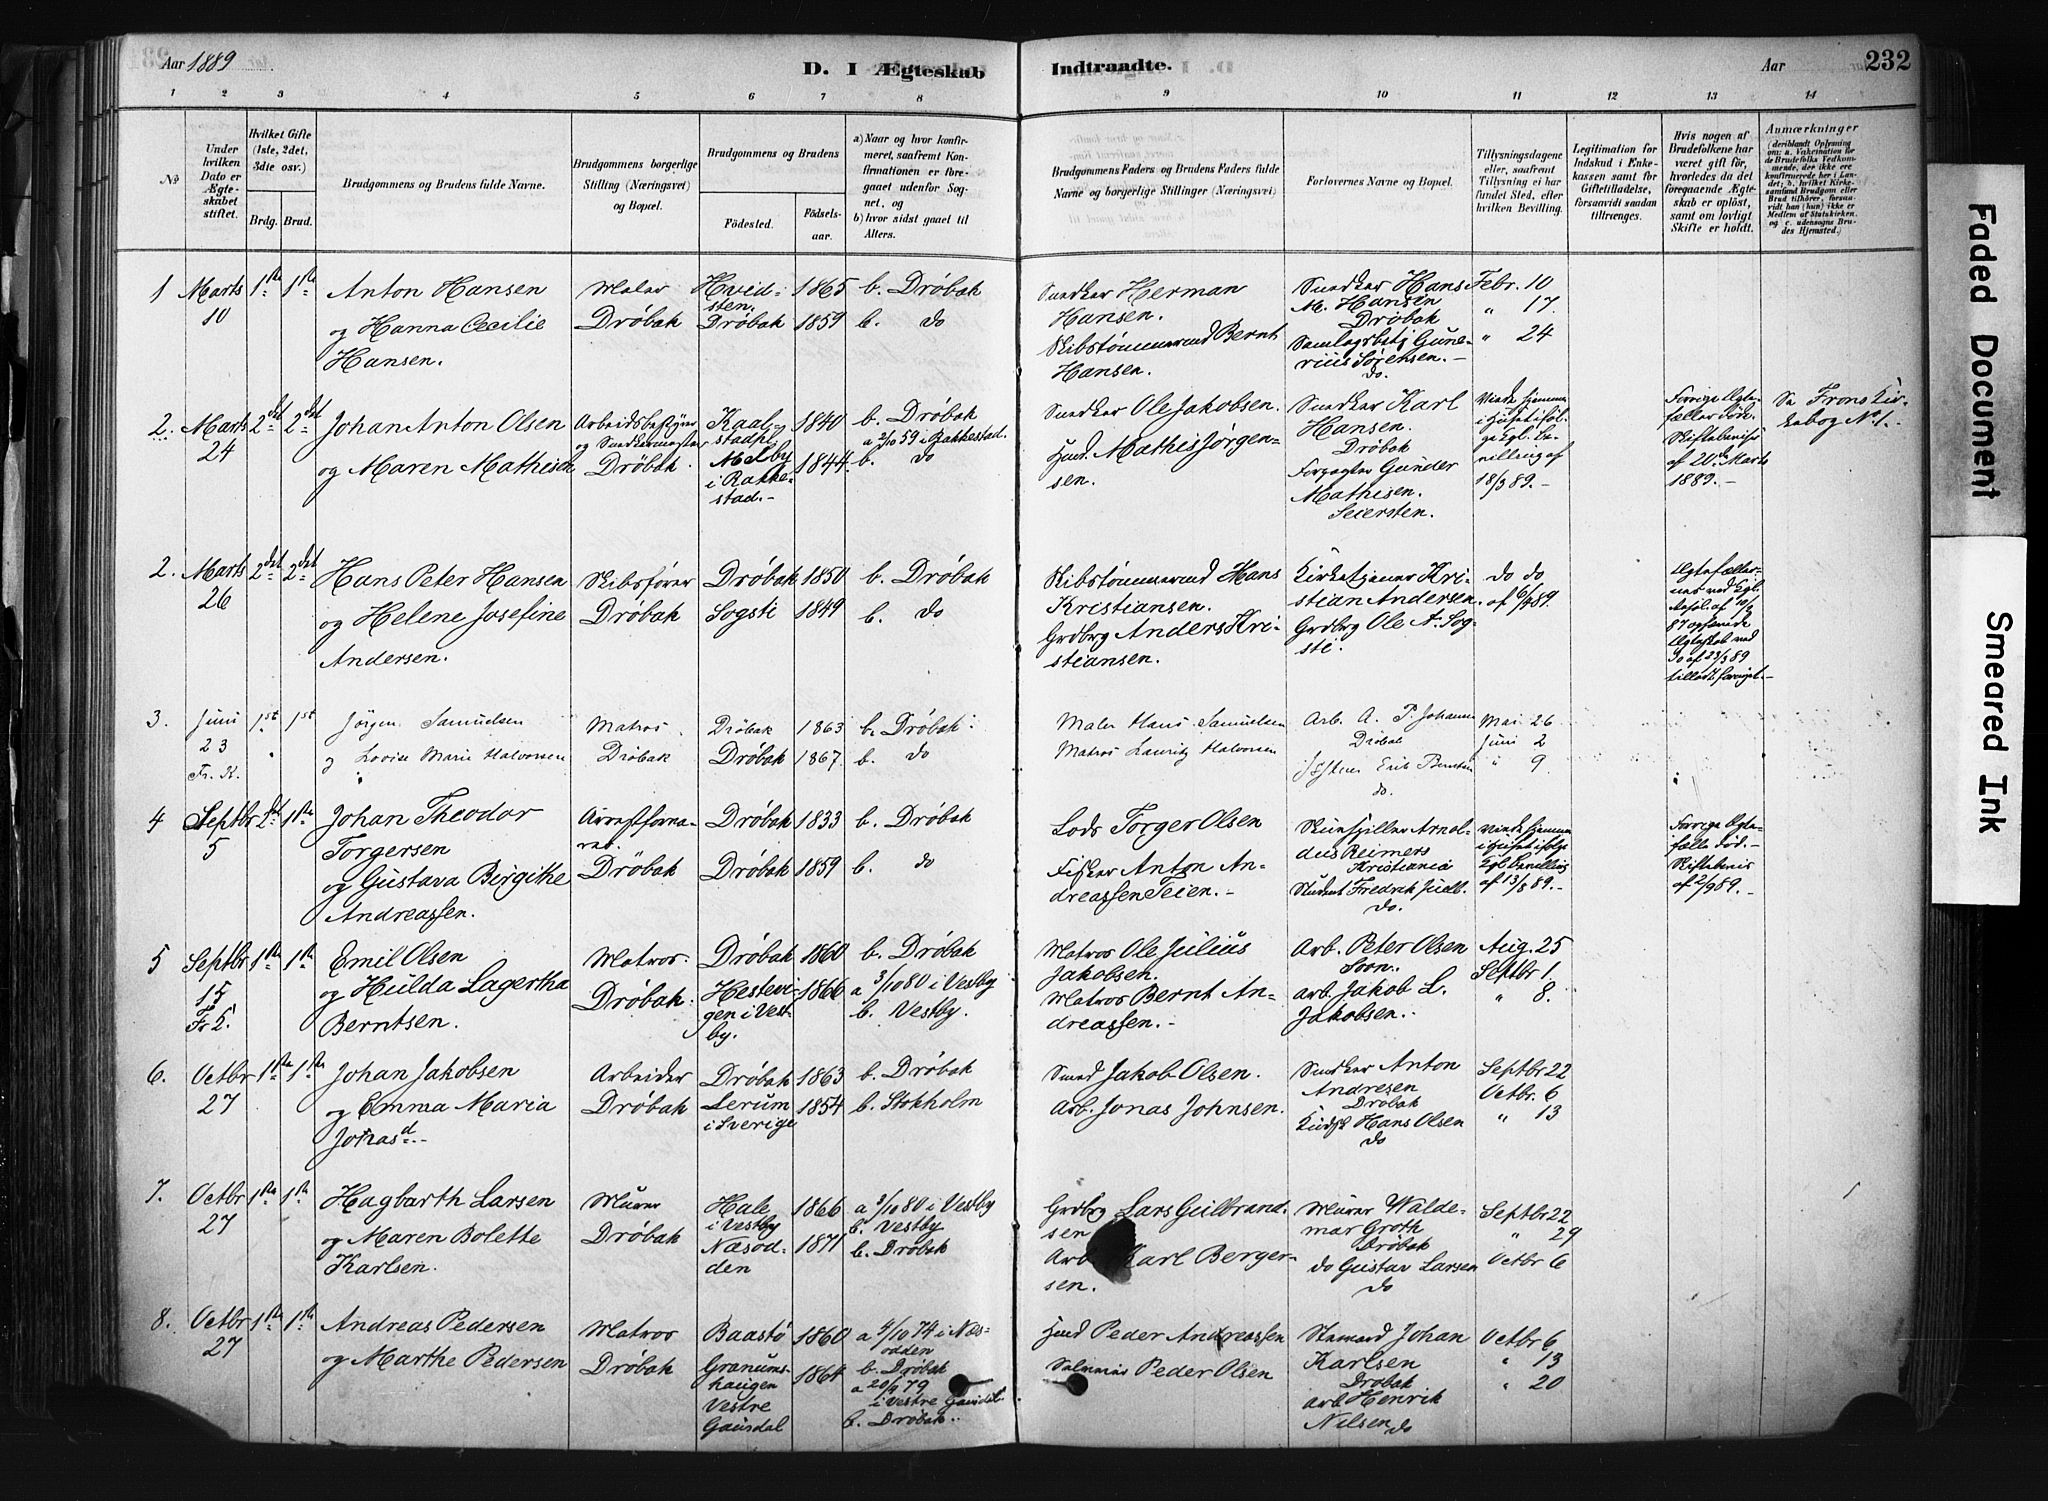 Aar 1889
D. I Ægteskab Indtraadte.
Aar
232
1 2 3 4 5 6 7 8 9 10 11 12 13 14
No
Under hvilken Dato er Ægteskabet stiftet.
Hvilket Gifte (1ste, 2det, 3die osv.)
Brdg. Brud.
Brudgommens og Brudens fulde Navne.
Brudgommens borgerlige Stilling (Næringsvei) og Bopæl.
Brudgommens og Brudens
Fødested.
Fødselsaar.
a) Naar og hvor konfirmeret, saafremt Konfirmationen er foregaaet udenfor Sognet, og
b) hvor sidst gaaet til Alters.
Brudgommens Faders og Brudens Faders fulde Navne og borgerlige Stillinger (Næringsvei)
Forlovernes Navne og Bopæl.
Tillysningsdagene eller, saafremt Tillysning ei har fundet Sted, efter hvilken Bevilling.
Legitimation for Indskud i Enkekassen samt for Giftetilladelse, forsaavidt saadan tiltrænges.
Hvis nogen af Brudefolkene har været gift før, hvorledes da det foregaaende Ægteskab er opløst, samt om lovligt Skifte er holdt.
Anmærkninger (deriblandt Oplysning om: a. Vakcination for de Brudefolks Vedkommende, der ikke ere konfirmerede her i Landet; b. hvilket Kirkesamfund Brudgom eller Brud tilhører, forsaavidt han (hun) ikke er Medlem af Statskirken, og c. udensogns Brudes Hjemsted.)
1 Marts 10 1ste 1ste
Anton Hansen
og Hanna Cecilie
Hansen.
Maler
Drøbak
Hvidsten.
Drøbak
1865
1859
b. Drøbak
b. do
Snedker Herman
Hansen.
Skibstømmermd Bernt
Hansen.
Snedker Hans
M. Hansen
Drøbak
Gunerius Sørensen.-
do.
Febr. 10
" 17.
" 24
2. Marts 24 2det 2det
Johan Anton Olsen
og Maren Mathisen
Arbeidsbestyrer
og Snedkermester
Drøbak.
Melby
i Rakkestad.-
1840
1844.
b. Drøbak
a 2/10 59 i Rakkestad.
b. do
Snedker Ole Jakobsen.
Husmd. Mathis Jørgensen.
Snedker Karl
Hansen.
Drøbak
Forpagter Gunder
Mathisen.
Seiersten.
18/3 89.-
af 20de Marts
1889.-
Se Frons Kirkebog No 1.
2. Marts 26 2det 2det
Hans Peter Hansen
og Helene Josefine
Andersen.
Skibsfører
Drøbak
Drøbak
Sogsti
1850
1849
b. Drøbak
b. do
Skibstømmermd Hans
Kristiansen.
Grdbrg Anders Kristiansen.
Kirketjener Kristian Andersen.
Grdbrg Ole A. Sogsti.
do do
3. Juni 23 Fr. K. 1st 1st
Jørgen Samuelsen
og Lovise Marie Halvorsen
Matros.
Drøbak
Drøbak
Drøbak
1863
1867.
b. Drøbak.
b. do
Maler Hans Samuelsen
Matros Lauritz Halvorsen
Arb. A. P. Johansen
Drøbak
Erik Berntsen
do.
Mai 26
Juni 2
" 9
4 Septbr 5 2det 1ste
Johan Theodor
Torgersen
og Gustava Birgithe
Andreassen.
Drøbak
Drøbak
Drøbak
1833
1859
b. Drøbak
b. do
Lods Torger Olsen
Fisker Anton Andreassen Teien.-
Skuespiller Arnoldus Reimers
Kristiania
Student Fredrik Juell.
do.
af 13/8 89.-
Forrige Ægtefælle død.
Skiftebevis
af 2/9 89.-
5 Septbr 15 1ste 1ste
Emil Olsen
og Hulda Lagertha
Berntsen.
Matros.
Drøbak.
Drøbak
Hestevigen i Vestby.
1860
1866
b. Drøbak
a 3/10 80 i Vestby
b. Vestby.
Matros Ole Julius
Jakobsen.
Matros Bernt Andreassen.-
Arb. Peter Olsen
Soon..
Arb. Jakob L.
Jakobsen..
Aug. 25
Septbr 1.
" 8.
6. Octbr 27 1ste 1ste
Johan Jakobsen
og Emma Maria
Jonasd.-
Arbeider
Drøbak
Drøbak
Lerum
i Sverige
1863
1854
b. Drøbak
b. Stokholm
Smed Jakob Olsen.
Arb. Jonas Johnsen.
Snedker Anton
Andresen
Drøbak
Kudsk Hans Olsen
do
Septbr 22
Octbr. 6
" 13
7. Octbr 27 1ste 1ste
Hagbarth Larsen
og Maren Bolette
Karlsen.
Murer
Drøbak
Hale
i Vestby
Næsodden
1866
1871
a 3/10 80 i Vestby
b. Vestby
b. Drøbak
Grdbrg Lars Gulbrandsen
Arb. Karl Bergersen.
Murer Waldemar Groth
Drøbak
do Gustav Larsen
do
Septbr 22
" 29
Octbr 6
8. Octbr 27 1ste 1ste
Andreas Pedersen
og Marthe Pedersen
Matros
Drøbak
Baastø
Granumshaugen
Vestre
Gausdal
1860
1864
a 4/10 74 i Næsodden
b. Drøbak
a 20/4 79
i Vestre Gausdal
b. Drøbak..
Husmd Peder Andreassen
Peder Olsen
Johan
Karlsen
Drøbak
Arb Henrik
Nilsen do
Octbr 6
" 13
" 20
Faded Document
Smeared Ink